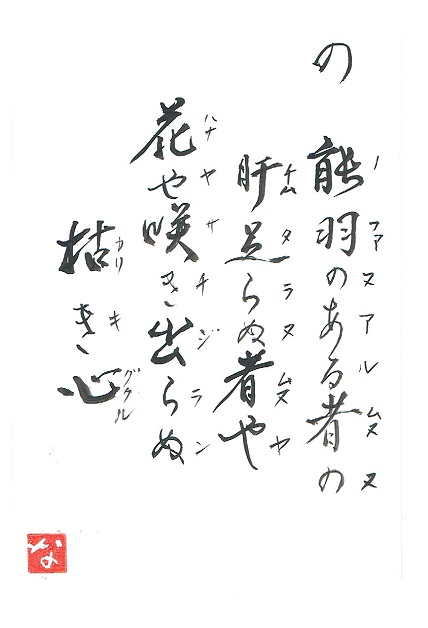 の
能羽のある者の
ノファヌアルムヌヌ
肝足らぬ者や
チムタラヌムヌヤ
花や咲き出らぬ
ハナヤサチジラン
枯き心
カリキグクル
な